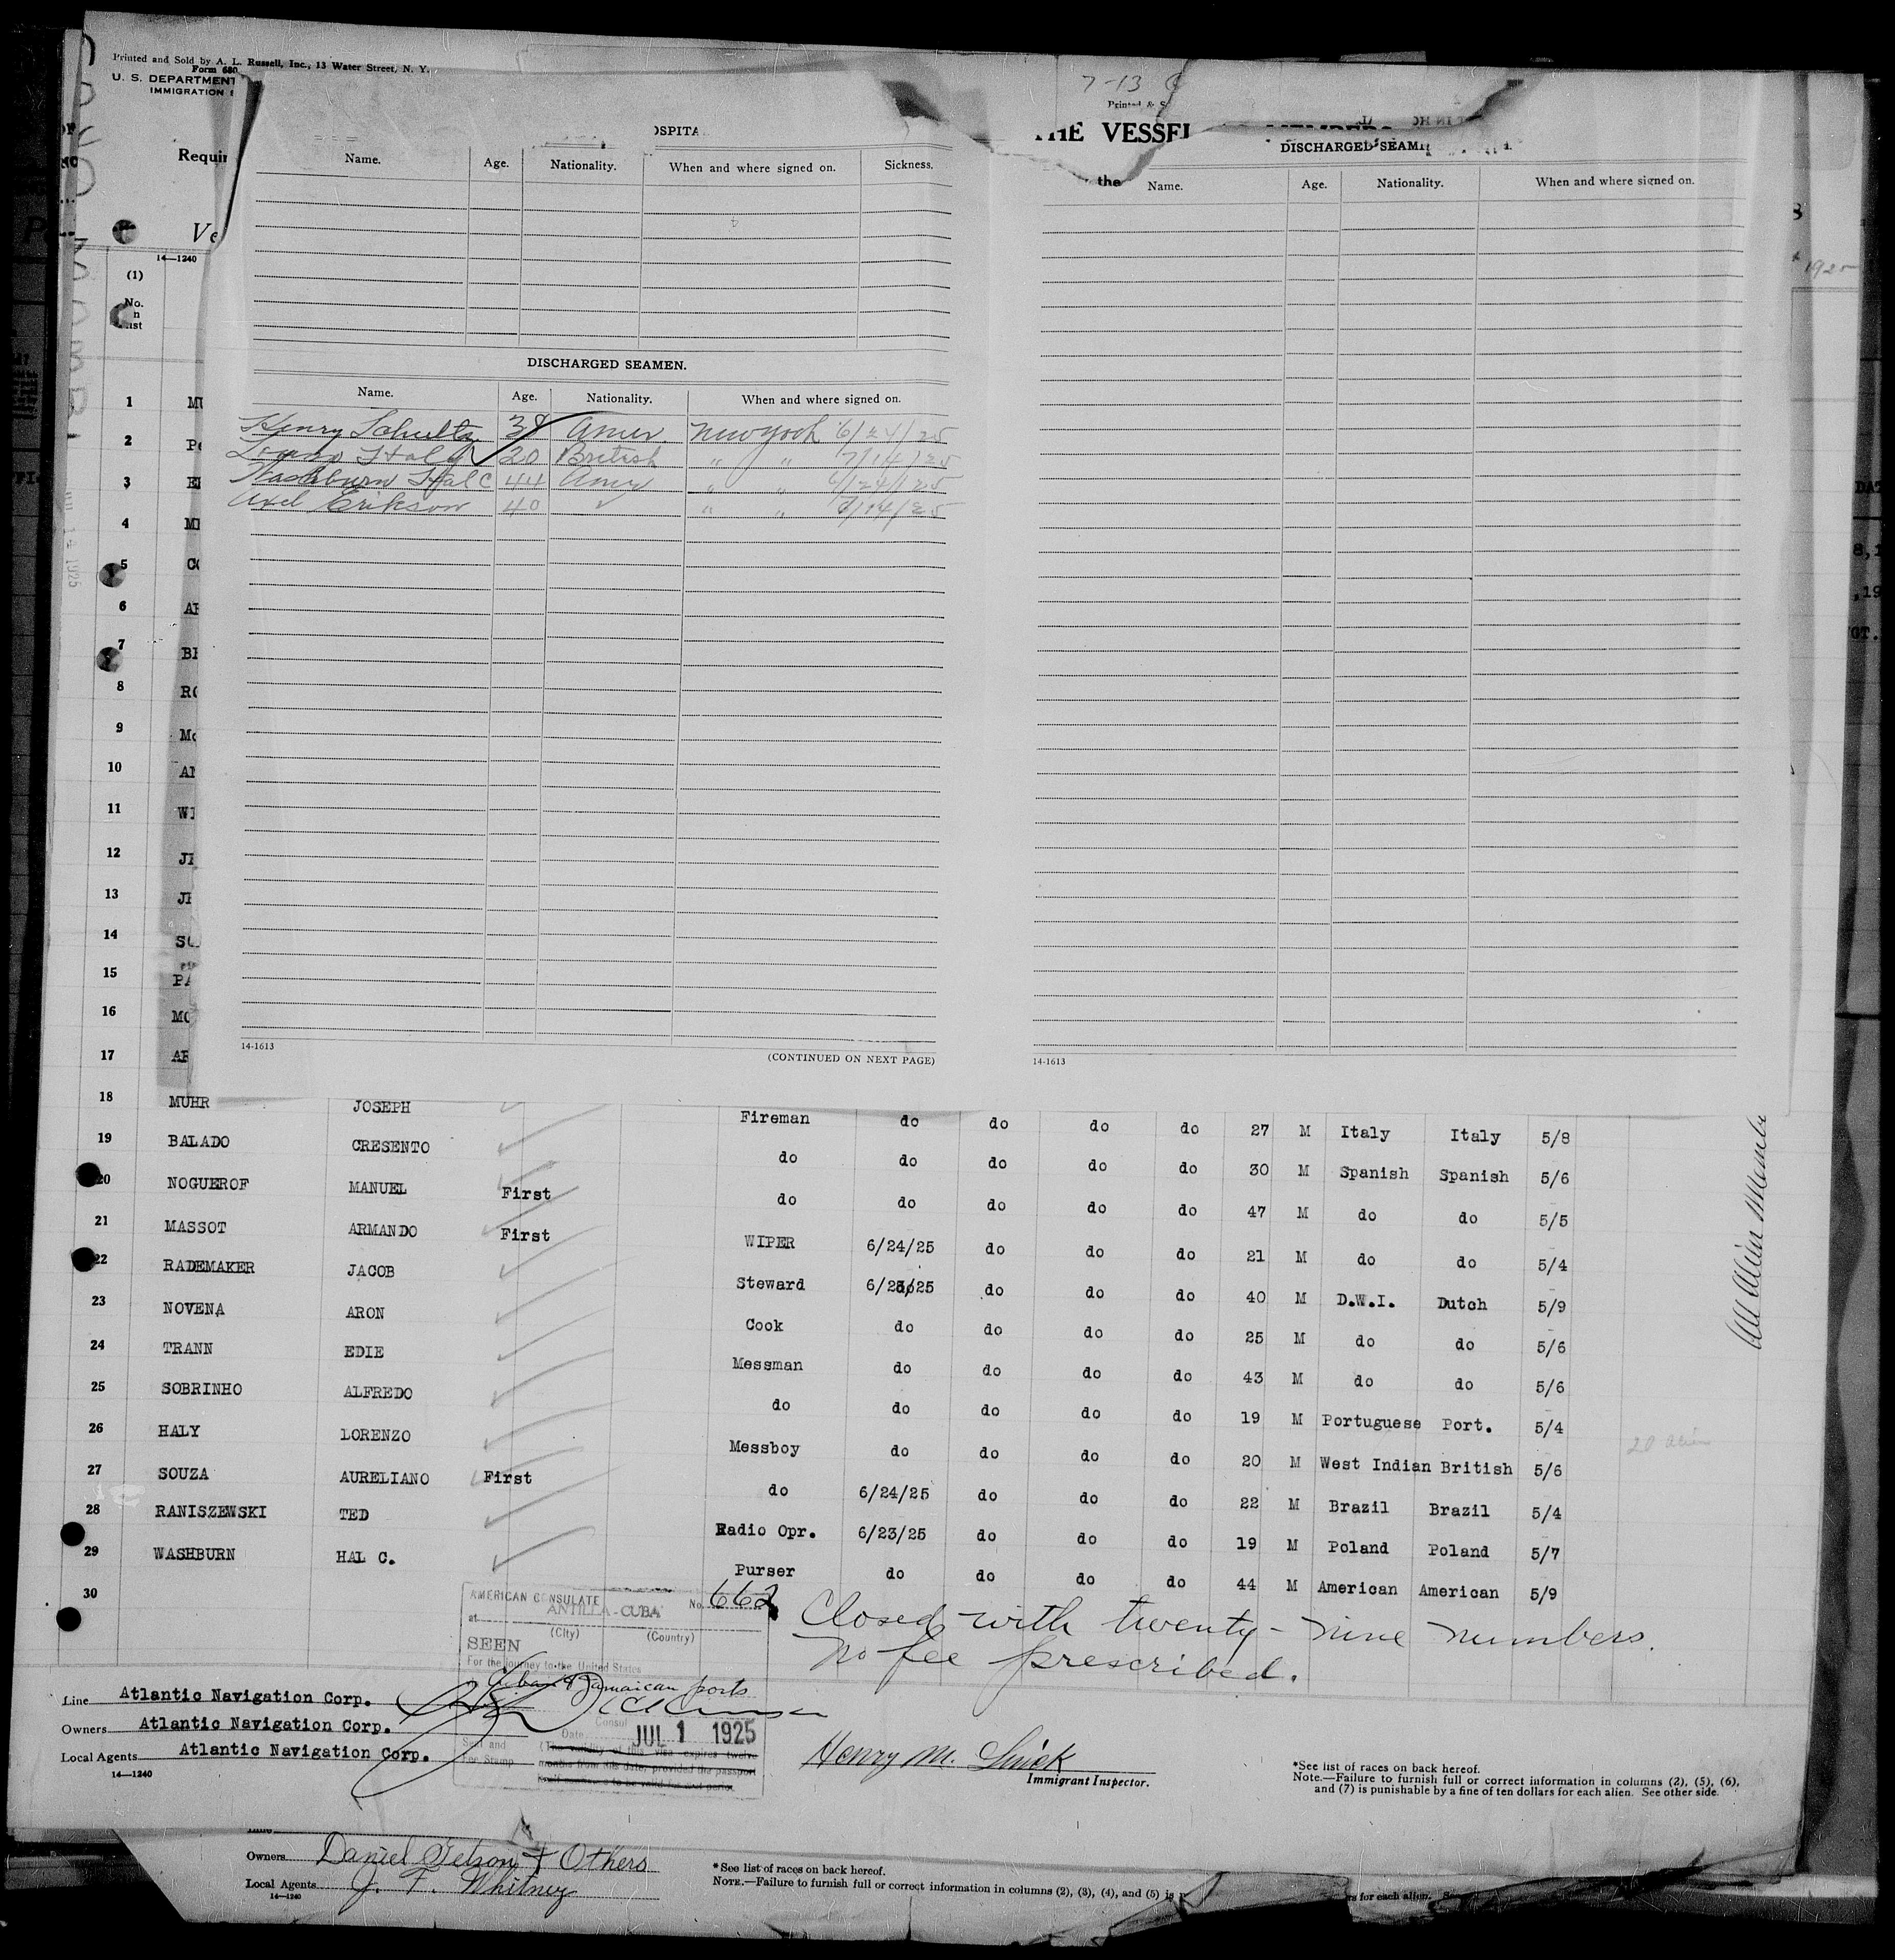 Printed and Sold by A. L. Russell, Inc., 13 Water Street, N. Y.
Form 680
U. S. DEPARTMENT
IMMIGRATION
Requir
Ve
14—1240
(1)
No.
7-13
THE VESSEL
the
Name. Age. Nationality. When and where signed on. Sickness.
DISCHARGED SEAMEN.
Name. Age. Nationality. When and where signed on.
Henry Schultz 38 Amer. New york 6/24/25
Haly 20 British " " 7/14/25
Washburn Hal C 44 Amer " " 6/24/25
Axel Erikson 40 " " " 7/14/25
14-1613
(CONTINUED ON NEXT PAGE)
DISCHARGED SEAM
Name. Age. Nationality. When and where signed on.
14-1613
1 MU
2 Pe
3 EL
4 ME
5 CO
6 AR
7 BE
8 RO
9 Mc
10 AN
11 WI
12 JE
13 JE
14 SC
15 PA
16 MC
17 AR
18 MUHR JOSEPH Fireman do do do do 27 M Italy Italy 5/8
19 BALADO CRESENTO do do do do do 30 M Spanish Spanish 5/6
20 NOGUEROF MANUEL First do do do do do 47 M do do 5/5
21 MASSOT ARMANDO First WIPER 6/24/25 do do do 21 M do do 5/4
22 RADEMAKER JACOB Steward 6/23/25 do do do 40 M D.W.I. Dutch 5/9
23 NOVENA ARON Cook do do do do 25 M do do 5/6
24 TRANN EDIE Messman do do do do 43 M do do 5/6
25 SOBRINHO ALFREDO do do do do do 19 M Portuguese Port. 5/4
26 HALY LORENZO Messboy do do do do 20 M West Indian British 5/6
27 SOUZA AURELIANO First do 6/24/25 do do do 22 M Brazil Brazil 5/4
28 RANISZEWSKI TED Radio Opr. 6/23/25 do do do 19 M Poland Poland 5/7
29 WASHBURN HAL C. Purser do do do do 44 M American American 5/9
30
20 alien
AMERICAN CONSULATE No. 662
at ANTILLA-CUBA
(City) (Country)
SEEN
For the journey to the United States
Cuban & Jamaican ports
Consul
Date JUL 1 1925
Seal and
Fee Stamp
(The validity of this visa expires twelve
months from this date, provided the passport
Closed with twenty-nine numbers.
No fee prescribed.
Line Atlantic Navigation Corp.
Owners Atlantic Navigation Corp.
Local Agents Atlantic Navigation Corp.
14—1240
Immigrant Inspector.
*See list of races on back hereof.
Note.—Failure to furnish full or correct information in columns (2), (5), (6),
and (7) is punishable by a fine of ten dollars for each alien. See other side.
Owners Daniel Gelson & Others
Local Agents J. F. Whitney
14—1240
*See list of races on back hereof.
NOTE.—Failure to furnish full or correct information in columns (2), (3), (4), and (5) is
for each alien.